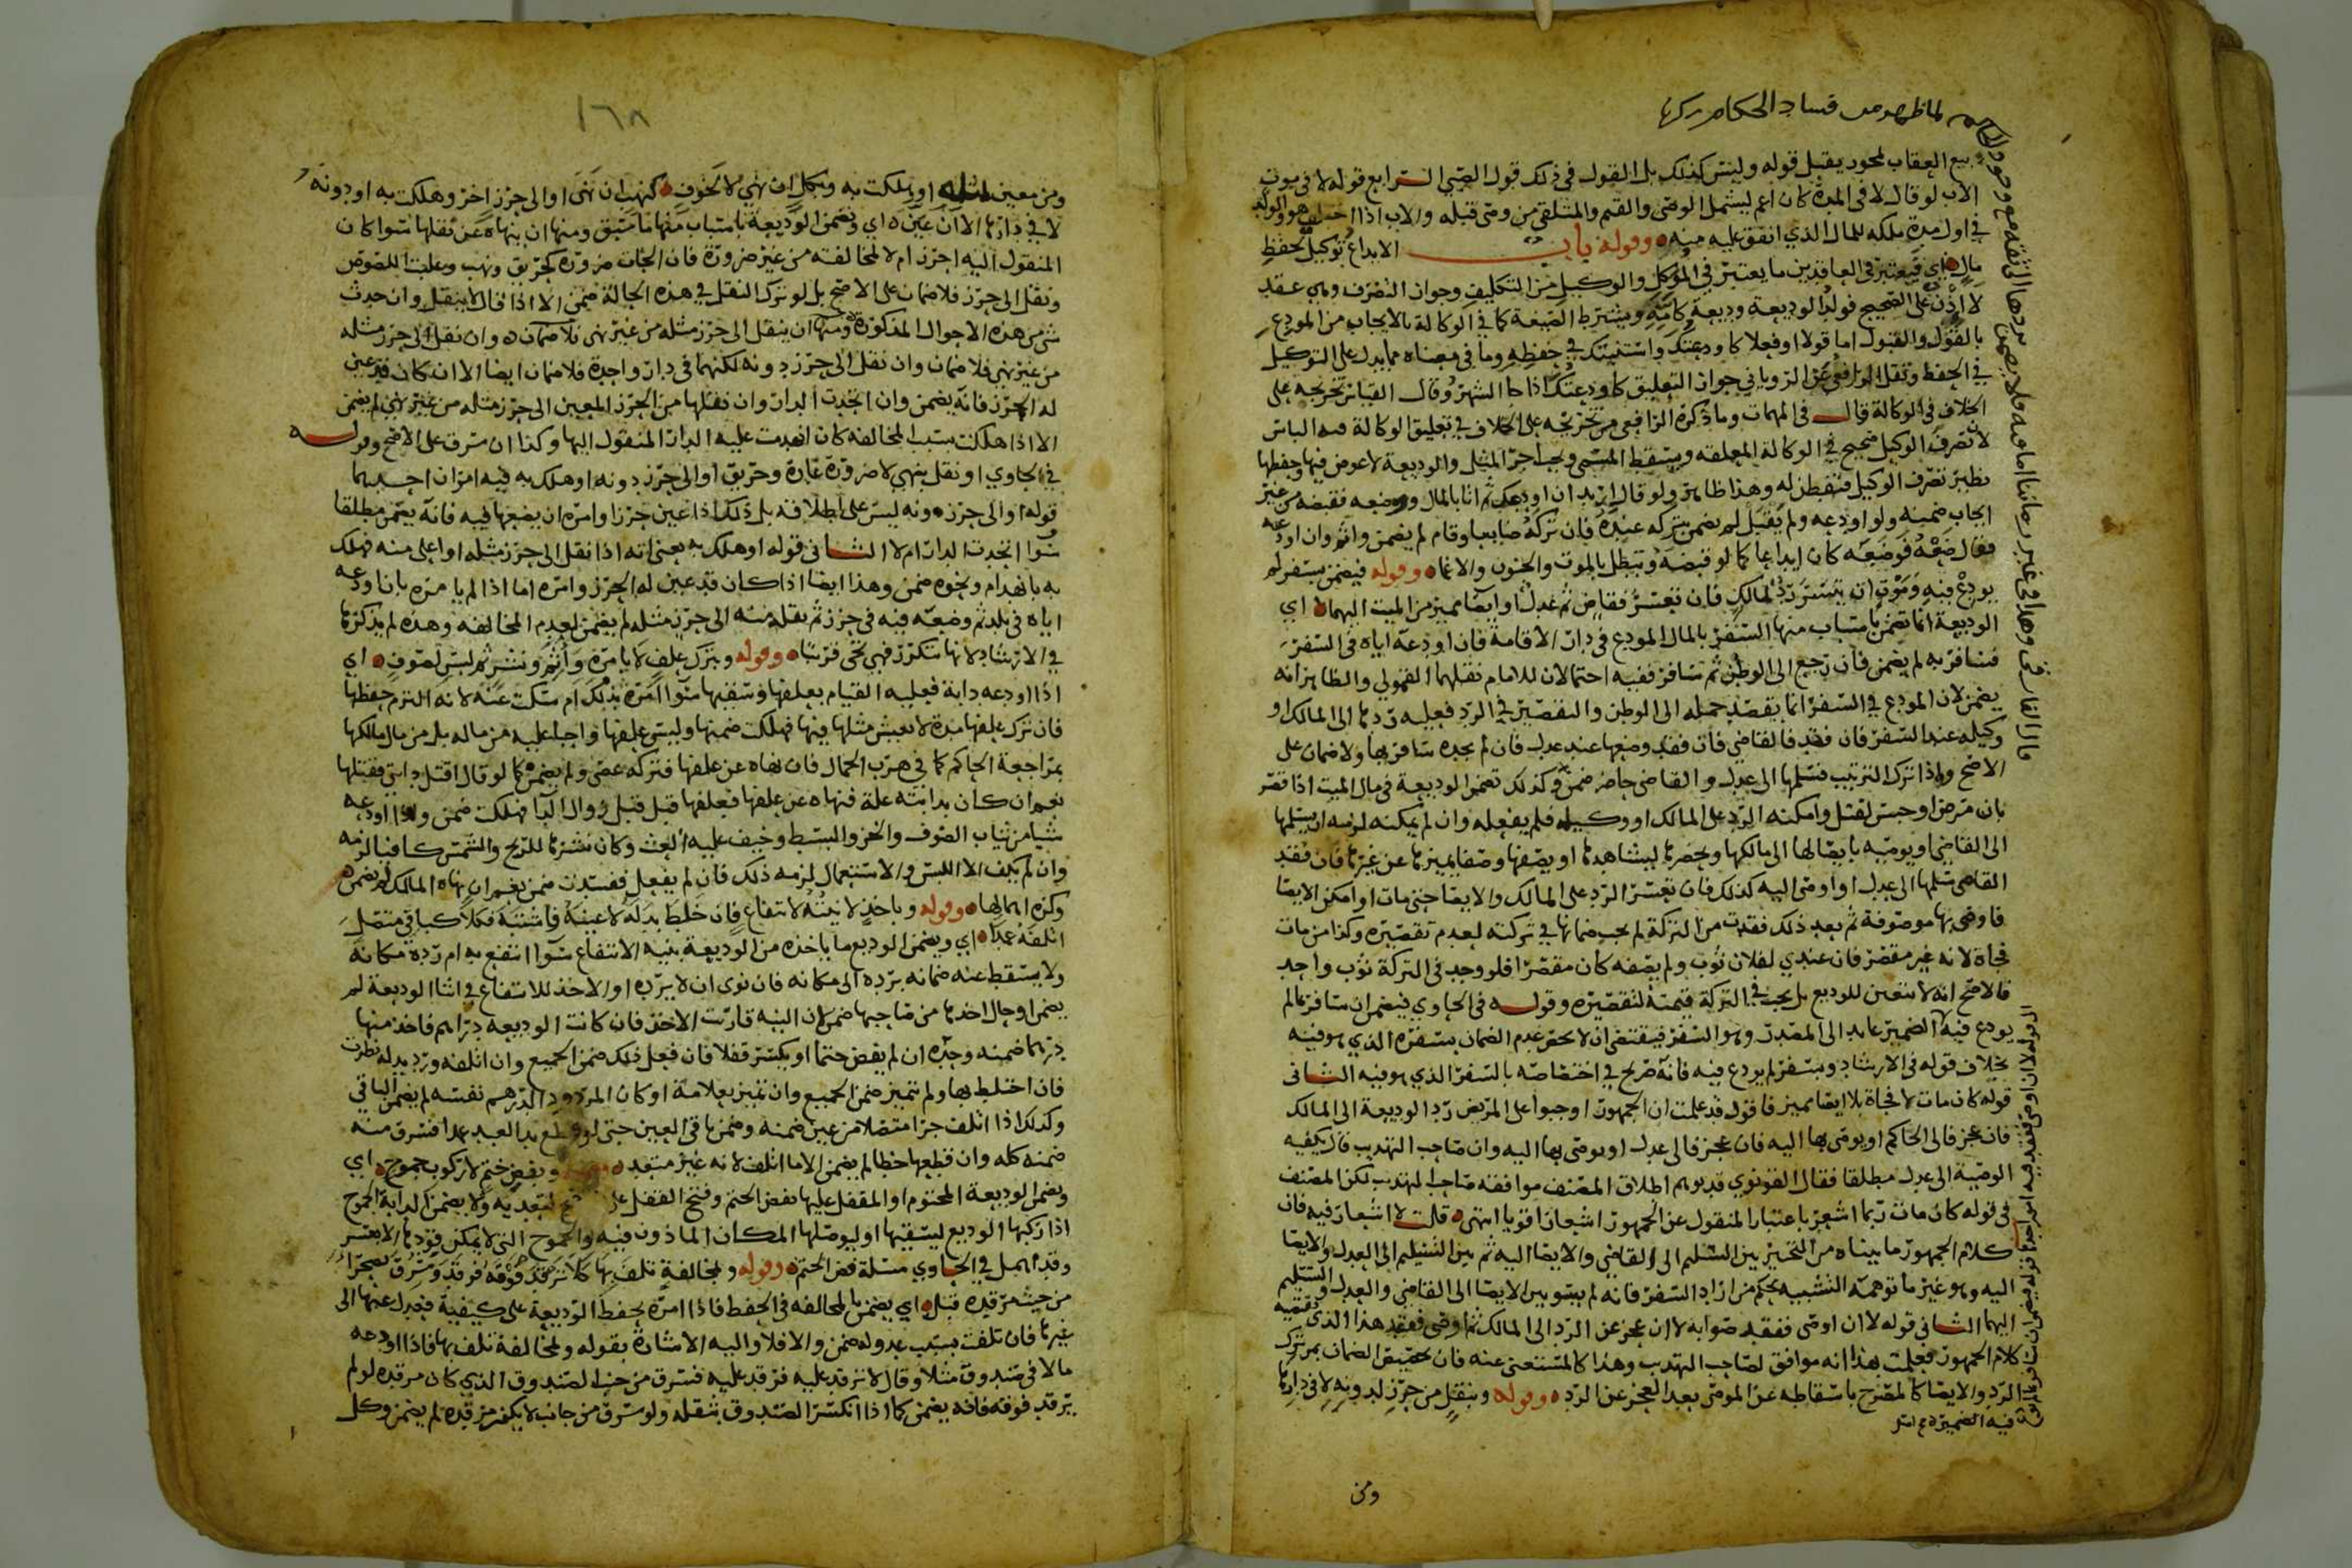 بيع العقاب لمحور يقبل قوله وليس كذلك بل القول في ذلك قول الصبي الرابع قوله لا في موت
الاب لو قال لا في المدة كان اعم ليشمل الوصي والقيم والمتلقى من وصى قبله والاب اذا اختلف هو والولد
في اول مدة ملكه للمال الذي انفق عليه منه وقوله باب الايداع توكيل بحفظ
مال اي فيعتبر في العاقدين ما يعتبر في الموكل والوكيل من التكليف وجواز التصرف
لا اذن على الصحيح فولد الوديعة وديعة كامه ويشترط الصيغة كما في الوكالة بالايجاب من المودع
بالقول والقبول اما قولا او فعلا كاودعتك واستنبتك في حفظه وما في معناه مما يدل على التوكيل
في الحفظ ونقل الرافعي عن الروياني جواز التعليق كاودعتك اذا جا الشهر وقال القياس تخريجه على
الخلاف في الوكالة قال في المهمات وما ذكره الرافعي من تخريجه على الخلاف في تعليق الوكالة فيه الباس
لان تصرف الوكيل صحيح في الوكالة المعلقة ويسقط المسمى ويجب اجر المثل والوديعة لا عوض فيها وحفظها
نظير تصرف الوكيل فتفطن له وهذا ظاهر ولو قال اريد ان اودعك ثم اتا بالمال ووضعه فقبضه من غير
ايجاب ضمنه ولو اودعه ولم يقبل لم يضمن بتركه عنده فان تركه ضايعا وقام لم يضمن واثم وان اودعه
فقال ضعه فوضعه كان ايداعا كما لو قبضه وتبطل بالموت والجنون والاغما وقوله فيضمن بسفر لم
يودع فيه وموت ان يتيسر رد لمالك فان تعسر فقاض ثم عدل او ايصا مميز من الميت اليهما اي
الوديعة انما تضمن باسباب منها السفر بالمال المودع في دار الاقامة فان اودعه اياه في السفر
فسافر به لم يضمن فان رجع الى الوطن ثم سافر ففيه احتمالان للامام نقلهما القمولي والظاهر انه
يضمن لان المودع في السفر انما يقصد حمله الى الوطن والتقصير في الرد فعليه ردها الى المالك او
وكيله عند السفر فان فقد فالقاضي فان فقد وضعها عند عدل فان لم يجده سافر بها ولا ضمان على
الاصح واذا ترك الترتيب فسلمها الى عدل والقاضي حاضر ضمن وكذلك تضمن الوديعة في مال الميت اذا قصر
بان مرض او حبس لقتل وامكنه الرد على المالك او وكيله فلم يفعله وان لم يمكنه لزمه ان يسلمها
الى القاضي او يوصيه بايصالها الى مالكها ويحضرها ليشاهدها او يصفها وصفا يميزها عن غيرها فان فقد
القاضي سلمها الى عدل او اوصى اليه كذلك فان تعسر الرد على المالك والايصا حتى مات او امكن الايصا
فاوصى بها موصوفة ثم بعد ذلك فقدت من التركة لم يجب ضمانها في تركته لعدم تقصيره وكذا من مات
فجاة لانه غير مقصر فان عندي لفلان ثوب ولم يصفه كان مقصرا فلو وجد في التركة ثوب واحد
فالاصح انه لا يتعين للوديع بل يجب في التركة قيمته لتقصيره وقوله في الحاوي فيضمن ان سافر بما لم
يودع فيه الضمير عايد الى المصدر وهو السفر فيقتضي ان لا يحصر عدم الضمان بسفره الذي هو فيه
بخلاف قوله في الارشاد وبسفر لم يودع فيه فانه صريح في اختصاصه بالسفر الذي هو فيه الثاني
قوله كان مات لا فجاة بلا ايصا مميز فاقول قد علمت ان الجمهور اوجبوا على المريض رد الوديعة الى المالك
فان عجز فالى الحاكم او يوصى بها اليه فان عجز فالى عدل او يوصى بها اليه وان صاحب التهذيب قال يكفيه
الوصية الى عدل مطلقا فقال القونوي قد يوهم اطلاق المصنف موافقة صاحب التهذيب لكن المصنف
في قوله كان مات ربما اشعر باعتبار المنقول عن الجمهور اشعارا قويا انتهى قلت لا اشعار فيه فان
كلام الجمهور ما بيناه من التخيير بين التسليم الى القاضي والايصا اليه ثم بين التسليم الى العدل والايصا
اليه وهو غير ما توهمه التشبيه بحكم من اراد السفر فانه لم يسو بين الايصا الى القاضي والعدل والتسليم
اليهما الثاني قوله لا ان اوصى ففقد صوابه لا ان عجز عن الرد الى المالك ثم اوصى ففقد هذا الذي يقتضيه
كلام الجمهور فعلمت بهذا انه موافق لصاحب التهذيب وهذا كالمستغنى عنه فان تخصيص الضمان بمن ترك
الرد والايصا كالمصرح باسقاطه عن الموصي بعد العجز عن الرد وقوله وبنقل من حرز لدونه لا في دارها
ومن
١٦٨
ومن معين لمثله او هلكت به وبكل ان نهي لا لخوف كنهب ان نهى او الى حرز اخر وهلكت به او دونه
لا في دارها الا ان عين اي وتضمن الوديعة باسباب منها ما سبق ومنها ان ينهاه عن نقلها سوا كان
المنقول اليه احرز ام لا لمخالفته من غير ضرورة فان الجات ضرورة كحريق ونهب وغلبة اللصوص
ونقل الى حرز فلا ضمان على الاصح بل لو ترك النقل في هذه الحالة ضمن الا اذا قال لا ينقل وان حدث
شي من هذه الاحوال المذكورة ومنها ان ينقل الى حرز مثله من غير نهي فلا ضمان وان نقل الى حرز مثله
من غير نهي فلا ضمان وان نقل الى حرز دونه لكنهما في دار واحدة فلا ضمان ايضا الا ان كان قد عين
له الحرز فانه يضمن وان اتحدت الدار وان نقلها من الحرز المعين الى حرز مثله من غير نهي لم يضمن
الا اذا هلكت بسبب المخالفة كان انهدمت عليه الدار المنقول اليها وكذا ان سرق على الاصح وقوله
في الحاوي او نقل بنهي لا ضرورة غارة وحريق او الى حرز دونه او هلك به فيه امران احدهما
قوله او الى حرز دونه ليس على اطلاقه بل ذلك اذا عين حرزا وامره ان يضعها فيه فانه يضمن مطلقا
سوا اتحدت الدار ام لا الثاني قوله او هلك به يعني انه اذا نقل الى حرز مثله او اعلى منه فهلك
به بانهدام ونحوه ضمن وهذا ايضا اذا كان قد عين له الحرز وامره اما اذا لم يامره بان اودعه
اياه في بلد ثم وضعه فيه في حرز ثم نقله منه الى حرز مثله لم يضمن لعدم المخالفة وهذه لم يذكرها
في الارشاد لانها تتكرر فهي تجي قريبا وقوله وبترك علف لا بامره واثم ونشر ثم لبس لصوف اي
اذا اودعه دابة فعليه القيام بعلفها وسقيها سوا امره بذلك ام سكت عنه لانه التزم حفظها
فان ترك علفها مدة لا يعيش مثلها فيها فهلكت ضمنها وليس علفها واجبا عليه من ماله بل من مال مالكها
بمراجعة الحاكم كما في هرب الجمال فان نهاه عن علفها فتركه عصى ولم يضمن كما لو قال اقتل دابتي فقتلها
نعم ان كان بدابته علة فنهاه عن علفها فعلفها قبل زوال الدا فهلكت ضمن واذا اودعه
شيا من ثياب الصوف والخز والبسط وخيف عليه العث وكان نشرها للريح والشمس كافيا لزمه
وان لم يكف الا اللبس والاستعمال لزمه ذلك فان لم يفعل ففسدت ضمن نعم ان نهاه المالك لم يضمن
وكره اهمالها وقوله وباخذ لا نيته لانتفاع فان خلط بدله لا عينه فاشتبه فكلا كباقي متصل
اتلفه عمدا اي ويضمن الوديع ما ياخذه من الوديعة بنية الانتفاع سوا انتفع به ام رده مكانه
ولا يسقط عنه ضمانه برده الى مكانه فان نوى ان لا يرده او الاخذ للانتفاع في اثنا الوديعة لم
يضمن او حال اخذها من صاحبها ضمن لان النية قارنت الاخذ فان كانت الوديعة دراهم فاخذ منها
درهما ضمنه وحده ان لم يفض ختما او يكسر قفلا فان فعل ذلك ضمن الجميع وان اتلفه ورد بدله نظرت
فان اختلط بها ولم تتميز ضمن الجميع وان تميز بعلامة او كان المردود الدرهم نفسه لم يضمن الباقي
وكذلك اذا اتلف جزا متصلا من عين ضمنه وضمن باقي العين حتى لو قطع يد العبد عمدا فسرق منه
ضمنه كله وان قطعها خطا لم يضمن الا ما اتلف لانه غير متعد وبفض ختم لا ركوب جموح اي
وتضمن الوديعة المختوم او المقفل عليها بفض الختم وفتح القفل لتعديه ولا يضمن الدابة الجموح
اذا ركبها الوديع ليسقيها او ليوصلها المكان الماذون فيه والجموح التي لا يمكن قودها الا بعسر
وقد اهمل في الحاوي مسئلة فض الختم وقوله ولمخالفة تلف بها كلا ترقد فوقه فرقد وسرق بصحرا
من حيث مرقده قبل اي يضمن بالمخالفة في الحفظ فاذا امره بحفظ الوديعة على كيفية فعدل عنها الى
غيرها فان تلفت بسبب عدوله ضمن والا فلا واليه الاشارة بقوله ولمخالفة تلف بها فاذا اودعه
مالا في صندوق مثلا وقال لا ترقد عليه فرقد عليه فسرق من جنب الصندوق الذي كان مرقده لو لم
يرقد فوقه فانه يضمن كما اذا انكسر الصندوق بثقله ولو سرق من جانب لا يكون مرقده لم يضمن وكل